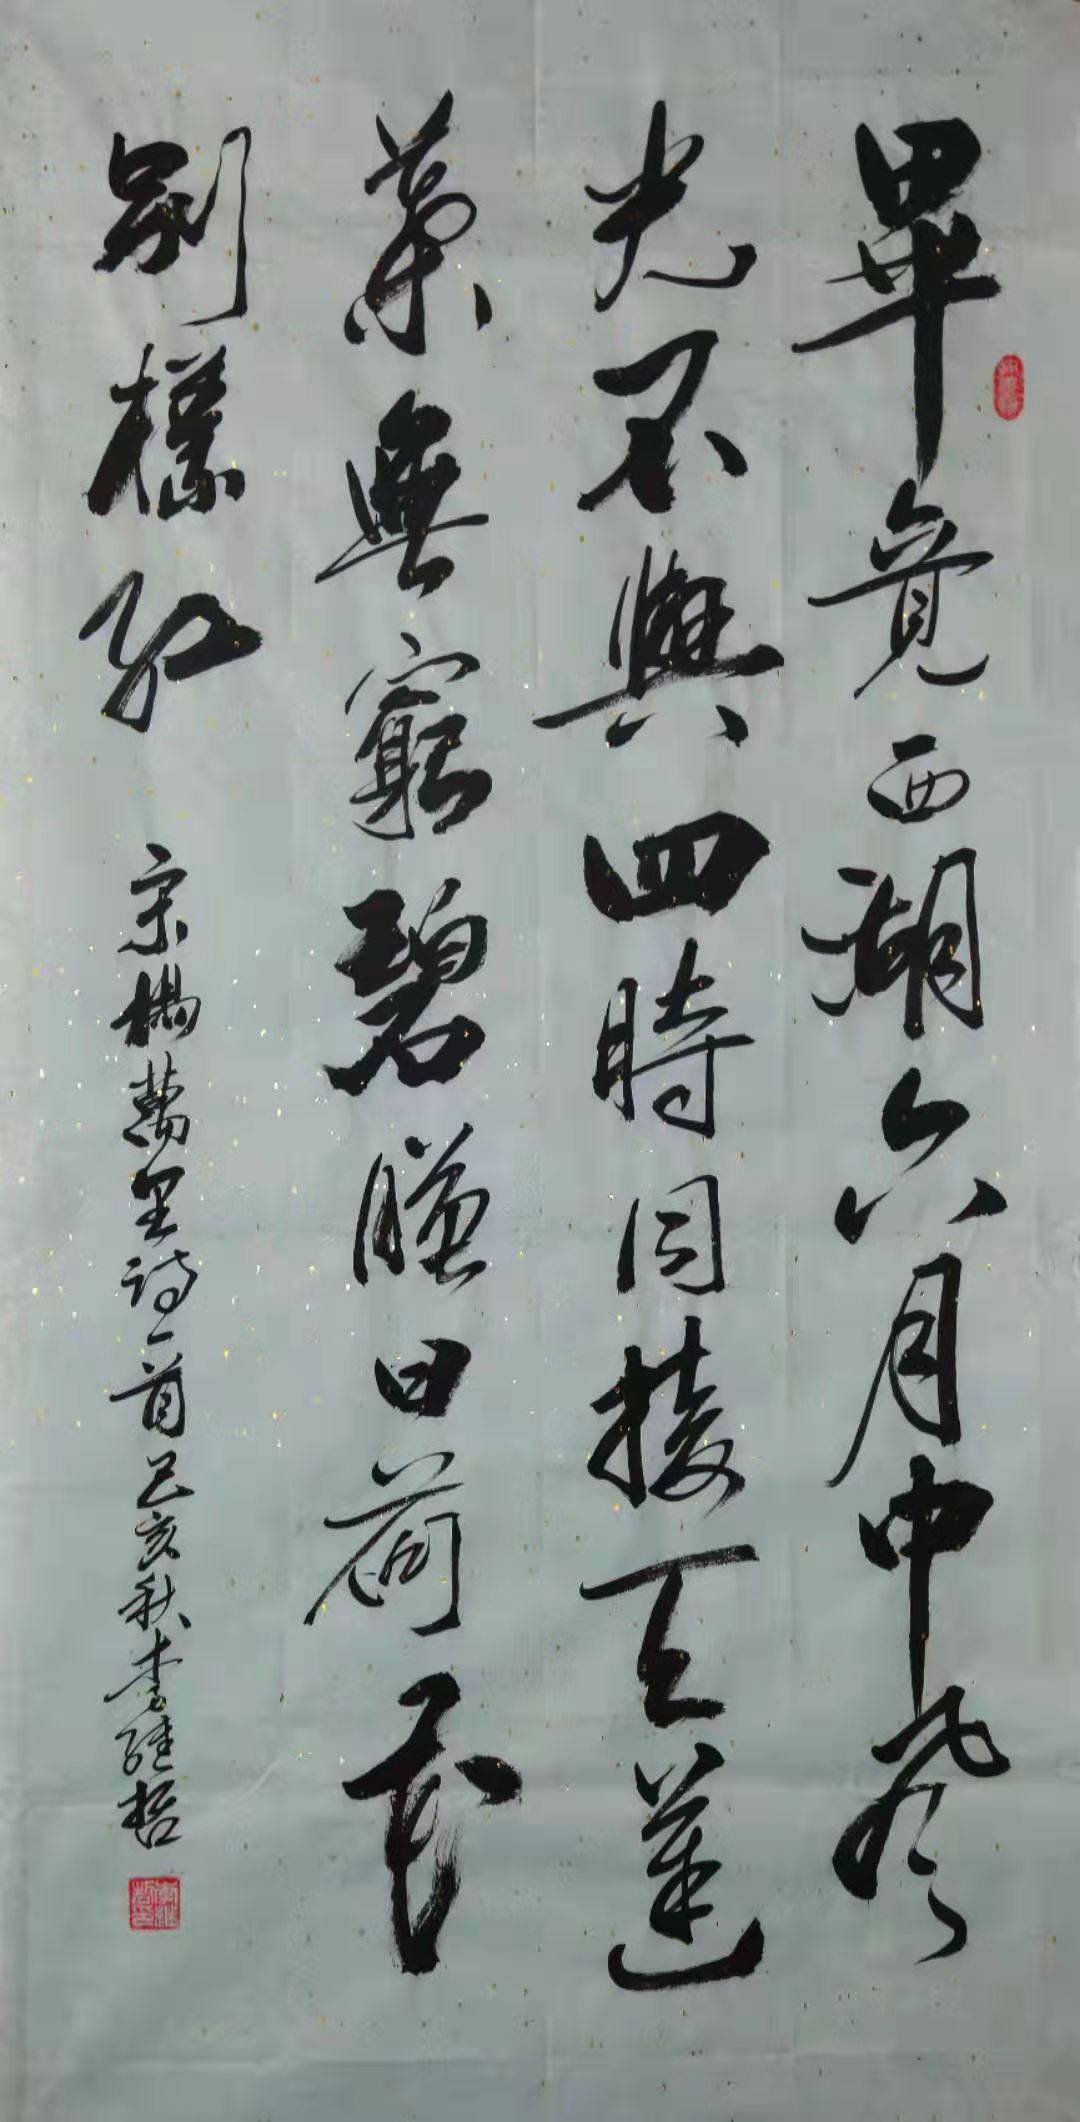 畢竟西湖六月中風
光不與四時同接天蓮
葉無窮碧暎日荷花
別樣紅 宋楊萬里詩一首己亥秋李維哲
李維哲印